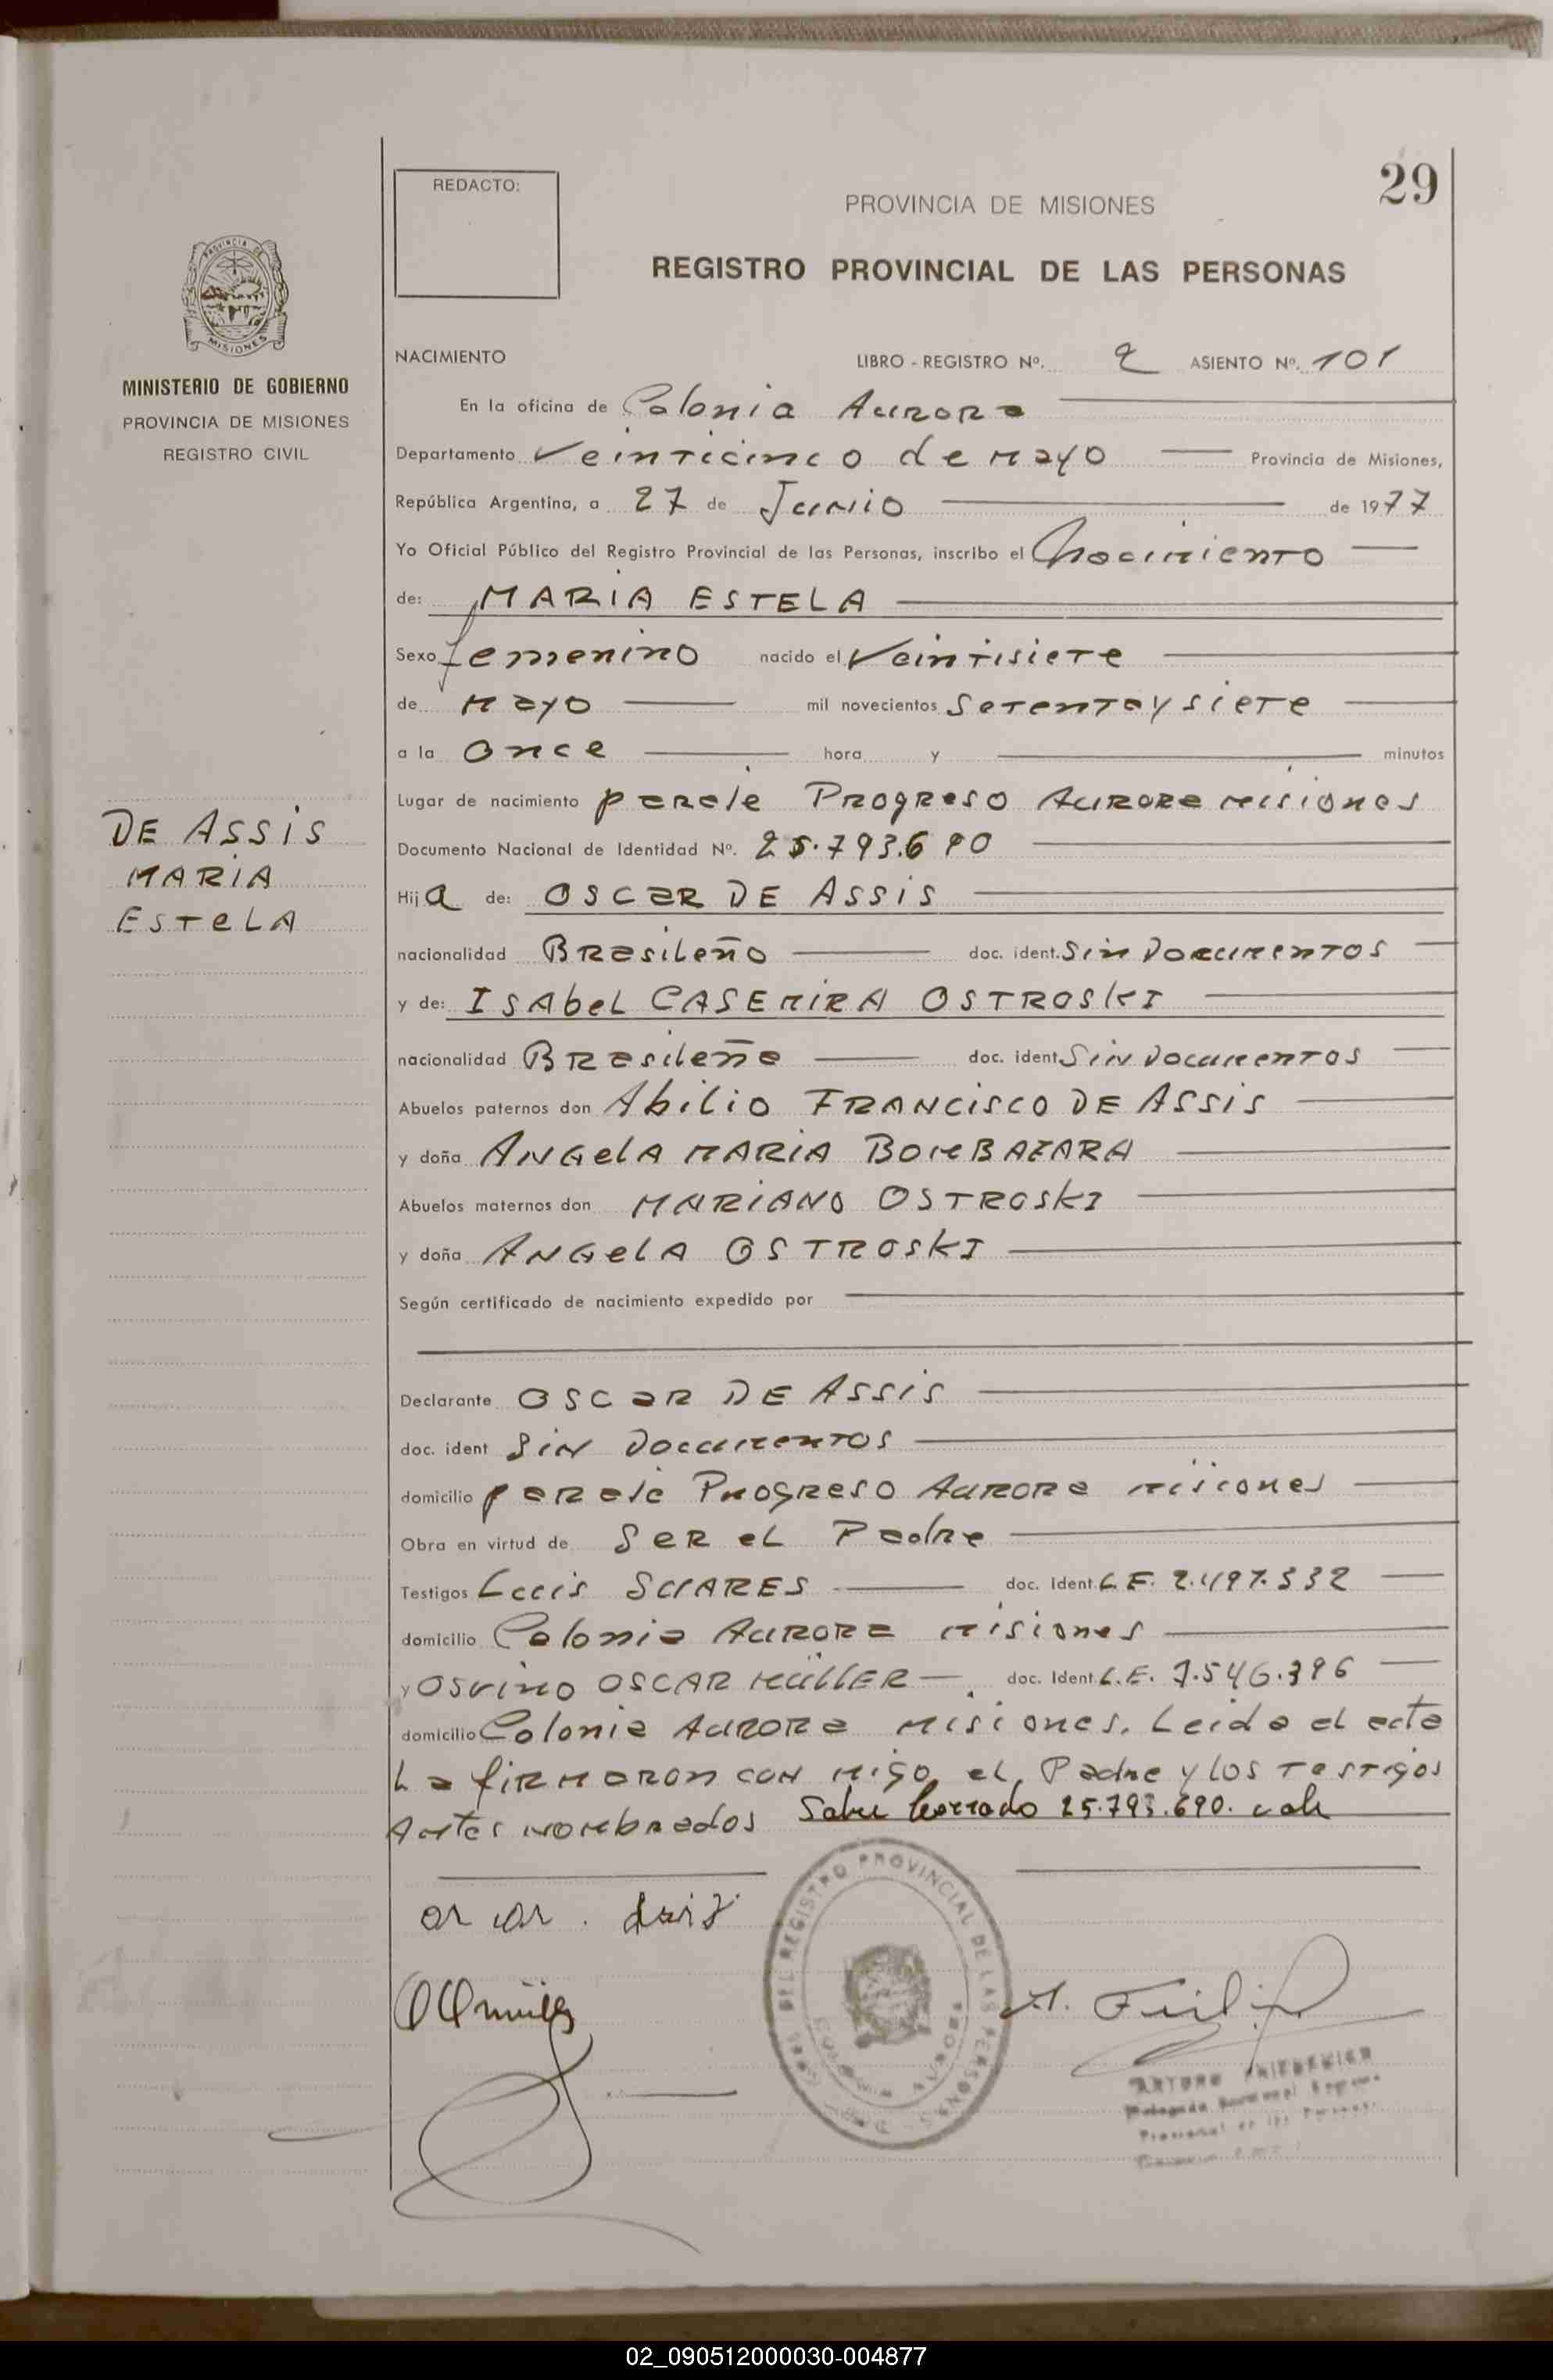 29
REDACTO:
PROVINCIA DE MISIONES
REGISTRO PROVINCIAL DE LAS PERSONAS
PROVINCIA DE
MISIONES
MINISTERIO DE GOBIERNO
PROVINCIA DE MISIONES
REGISTRO CIVIL
NACIMIENTO LIBRO - REGISTRO Nº. 2 ASIENTO Nº. 101
En la oficina de Colonia Aurora
Departamento Veinticinco de mayo Provincia de Misiones,
República Argentina, a 27 de Junio de 1977
Yo Oficial Público del Registro Provincial de las Personas, inscribo el Nacimiento
de: MARIA ESTELA
Sexo femenino nacido el Veintisiete
de mayo mil novecientos Setenta y siete
a la Once hora y minutos
Lugar de nacimiento paraje Progreso Aurora misiones
DE ASSIS
MARIA
ESTELA
Documento Nacional de Identidad Nº. 25.793.690
Hija de: OSCAR DE ASSIS
nacionalidad Brasileño doc. ident. Sin Documentos
y de: ISAbeL CASEMIRA OSTROSKI
nacionalidad Brasileña doc. ident Sin Documentos
Abuelos paternos don Abilio FRANCISCO DE ASSIS
y doña ANGelA MARIA BOMBAZARA
Abuelos maternos don MARIANO OSTROSKI
y doña ANGelA OSTROSKI
Según certificado de nacimiento expedido por
Declarante OSCAR DE ASSIS
doc. ident Sin Documentos
domicilio paraje Progreso Aurora misiones
Obra en virtud de SER el Padre
Testigos Luis SUARES doc. Ident. L.E. 2.497.332
domicilio Colonia Aurora misiones
y OSVINO OSCAR MüLLER doc. Ident. L.E. 7.546.396
domicilio Colonia Aurora misiones. Leida el acta
La firmaron con migo el Padre y los Testigos
Antes nombrados Sobre borrado 25.793.690. vale
DEL REGISTRO PROVINCIAL DE LAS PERSONAS
ARTURO
02_090512000030-004877